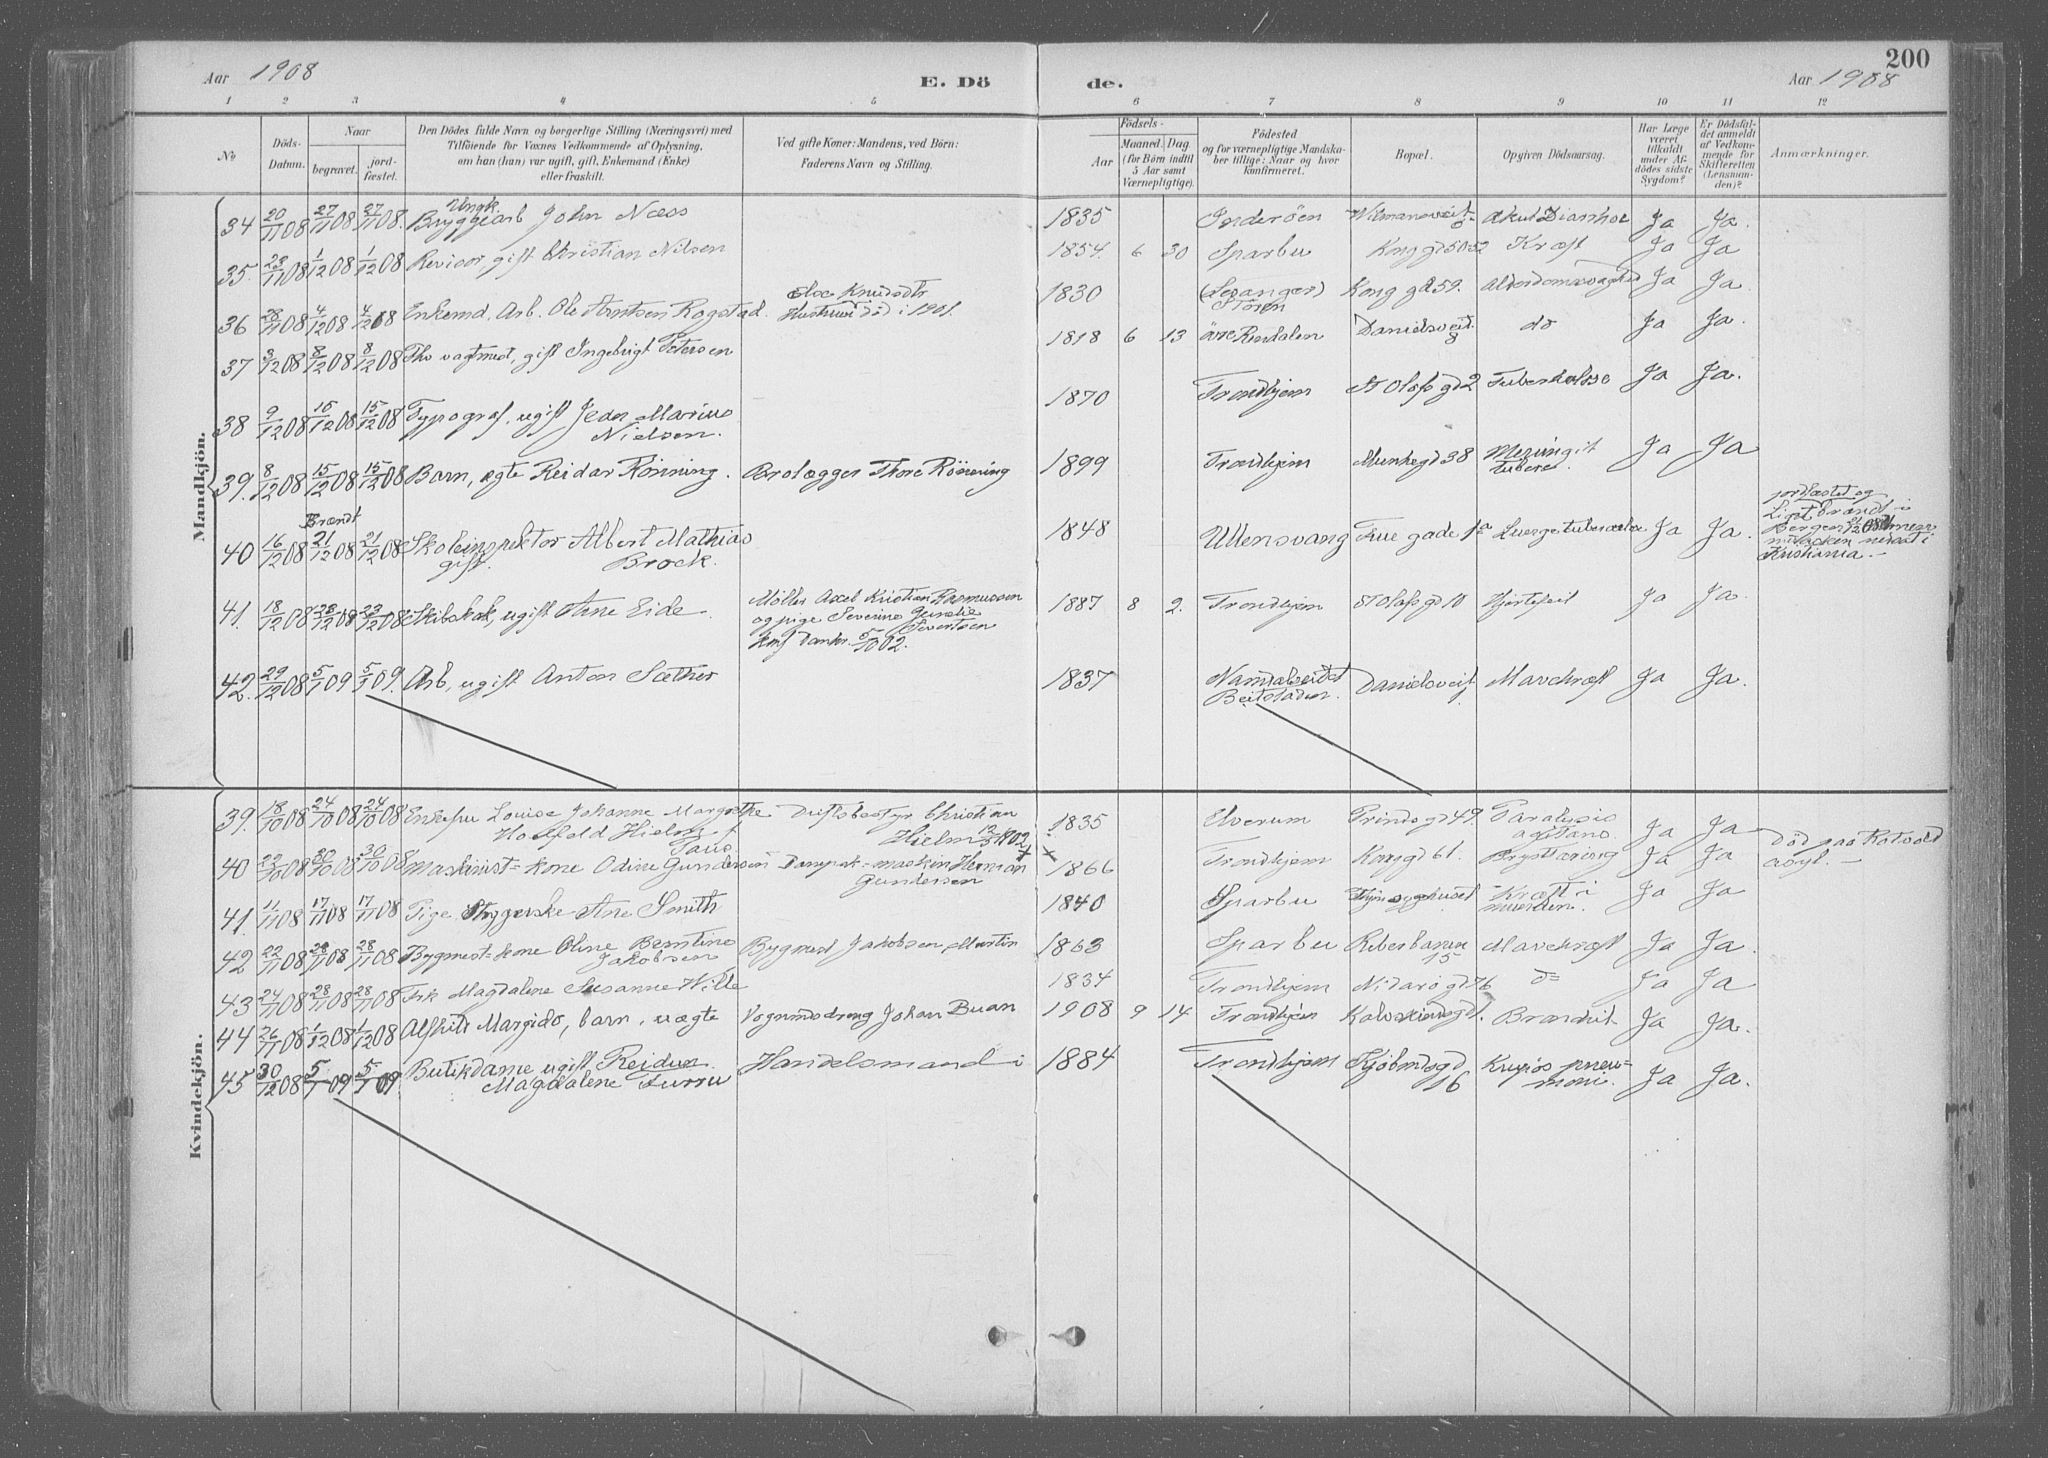 Aar 1908
E. Dö
de.
Aar 1908
200
1 2 3 4 5 6 7 8 9 10 11 12
No
Döds-Datum.
Naar
begravet.
jord-fæstet.
Den Dödes fulde Navn og borgerlige Stilling (Næringsvei) med
Tilföiende for Voxnes Vedkommende af Oplysning,
om han (hun) var ugift, gift, Enkemand (Enke)
eller fraskilt.
Ved gifte Koner: Mandens, ved Börn:
Faderens Navn og Stilling.
Födsels-
Aar
Maaned. Dag
(for Börn indtil
5 Aar samt
Værnepligtige).
Födested
og for værnepligtige Mandska-
ber tillige: Naar og hvor
konfirmeret.
Bopæl.
Opgiven Dödsaarsag.
Har Læge
været
tilkaldt
under Af-
dödes sidste
Sygdom?
Er Dödsfal-
det anmeldt
af Vedkom-
mende for
Skifteretten
(Lensman-
den)?
Anmærkninger.
Mandkjön.
34 20/11 08 27/11 08 27/11 08. Ungk. Bryggearb John Næss 1835 Inderöen akut Diarrhoe Ja Ja.
35. 23/11 08 1/12 08 1/12 08 Revisor gift Christian Nilsen 1854. 6 30 Sparbu Kong gd 50-52 Kræft Ja Ja
36 28/11 08 4/12 08 4/12 08 Enkemd, Arb. Ole Arntsen Rogstad. Knudsdtr Hustruen död i 1901. 1830 Stören Kong gd 59. Alderdomssvaghed Ja Ja.
37 3/12 08 8/12 08 8/12 08 gift Ingebrigt Petersen 1818 6 13 Rendalen Danielsveit 8 do Ja Ja.
38 9/12 08 15/12 08 15/12 08 Typograf, ugift Jeder Marius
Nielsen. 1870 Trondhjem St Olafs gd 2 Tuberkulose Ja Ja.
39. 8/12 08 15/12 08 15/12 08 Barn, ægte Reidar Rönning. Brolægger Thore Rönning 1899 Trondhjem Munkegd 38 Meningit
tuberc. Ja Ja
40 16/12 08 Brændt 21/12 08 21/12 08 Skoleinspektor Albert Mathias
gift. Brock. 1848 Ullensvang gade 1a Lungetuberculose Ja Ja. jordfæstet og
Liget brændt i
Bergen 21/12 08
nedsat i
Kristiania. -
41. 18/12 08 23/12 08 23/12 08 Skibskok, ugift Arne Eide. Möller Axel Kristian Rasmussen
og pige Severine Gurolie
Sivertsen
Konf Domkr. 5/10 02. 1887 8 2. Trondhjem St Olafs gd 10 Hjertefeil Ja Ja.
42. 29/12 08 5/1 09 5/1 09. Arb, ugift Anton Sæther 1837 Namdalseidet
Beitstaden. Danielsveit Mavekræft Ja Ja.
Kvindekjön.
39. 18/10 08 24/10 08 24/10 08 Enkefru Louise Johanne Margrethe
Hielm f
Driftsbestyr Christian
Hielm 1835 Elverum Prinds gd 49. Paralysis
agitans. Ja Ja Död paa Rotvold
asyl. -
40 22/10 08 30/10 08 30/10 08 Maskinist-kone Odine Gundersen Dampsk-maskin Herman
Gundersen 1866 Trondhjem Konggd 61. Ja Ja
41. 11/11 08 17/11 08 17/11 08 Pige Strygerske Ane Smith 1840 Sparbu Kræft i
Ja Ja
42 22/11 08 28/11 08 28/11 08 Bygmest-kone Oline Berntine
Jakobsen Bygmest Jakobsen Martin 1863 Sparbu 15 Mavekræft Ja Ja.
43 24/11 08 28/11 08 28/11 08 Frk Magdalene Susanne Wille 1834 Trondhjem Nidarö gd 76 do Ja Ja
44 26/11 08 1/12 08 1/12 08 Alfhild Margido, barn, uægte Vognmdsdreng Johan Buan 1908 9 14 Trondhjem Ja Ja.
45 30/12 08 5/1 09 5/1 09. Butikdame ugift Reidun
Magdalene Handelsmand i 1884 Trondhjem Kjöbmdsgd
16 Krupös pneu-
moni. Ja Ja.